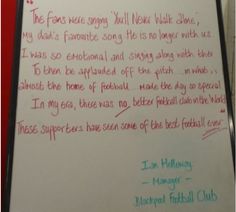 The fans were singing "You'll Never Walk Alone",
my dad's favourite song. He is no longer with us.
I was so emotional and singing along with them
To then be applauded off the pitch.. in what is
almost the home of football.. made the day so special
In my era, there was no better football club in the World
These supporters have seen some of the best football ever
Ian Holloway
- Manager -
Blackpool Football Club